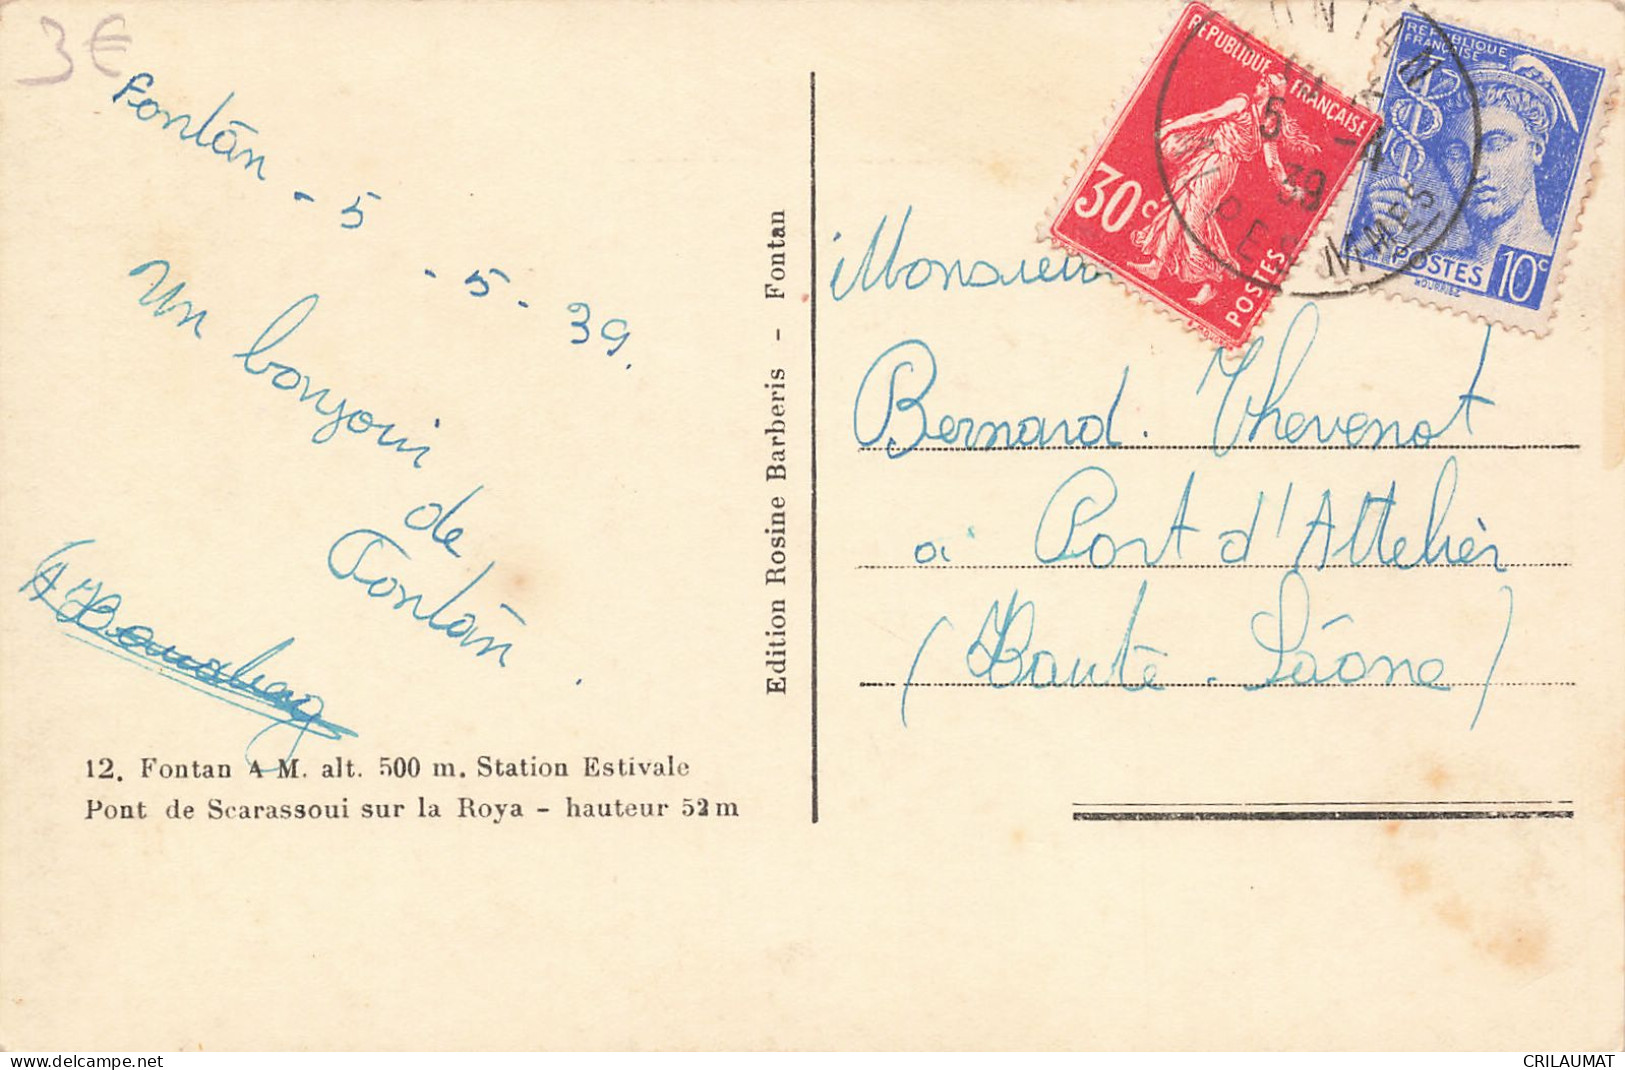 3€
Fontân - 5 - 5 - 39.
Un bonjour
de
Fontân.
12. Fontan A M. alt. 500 m. Station Estivale
Pont de Scarassoui sur la Roya - hauteur 52 m
Edition Rosine Barberis - Fontan
REPUBLIQUE FRANÇAISE
30c
POSTES
5 -4
39
REPUBLIQUE
FRANÇAISE
POSTES 10c
Monsieur
Bernard. Thevenot
à Port d'Attelièr
(Haute-Sâone)
www.delcampe.net
CRILAUMAT